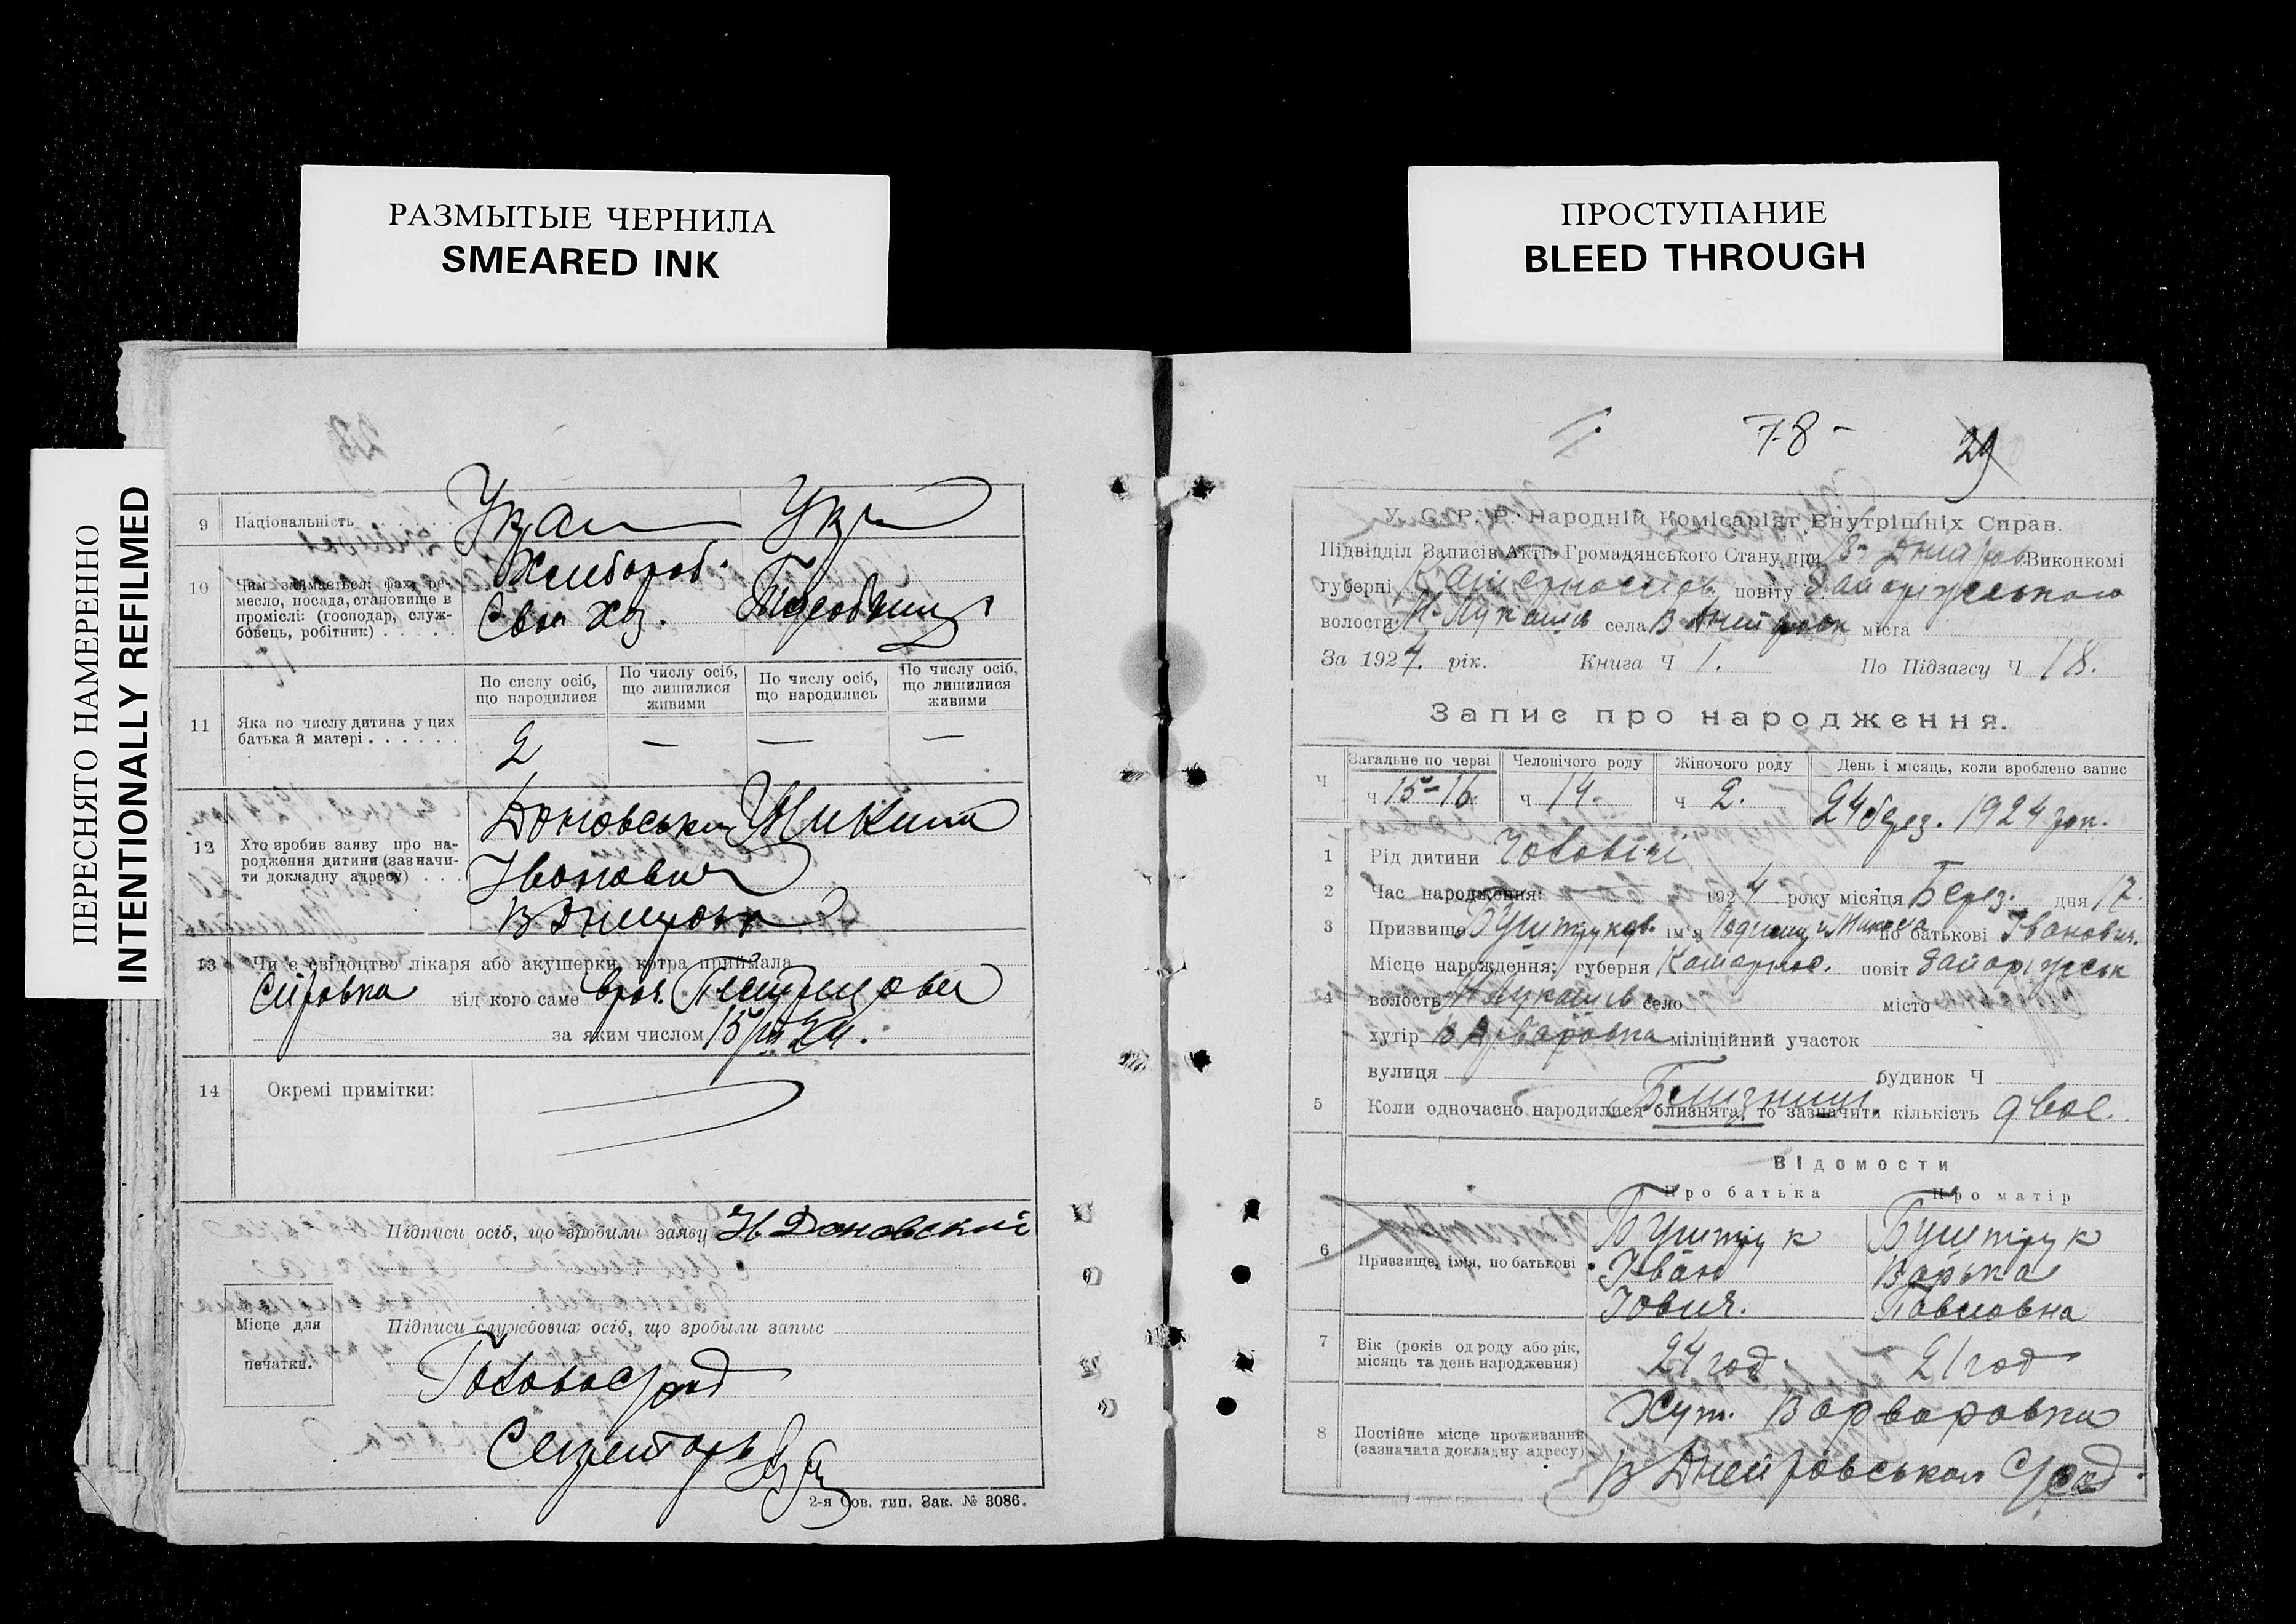 РАЗМЫТЫЕ ЧЕРНИЛА
SMEARED INK
ПРОСТУПАНИЕ
BLEED THROUGH
ПЕРЕСНЯТО НАМЕРЕННО
INTENTIONALLY REFILMED
9 Національність
10 Чим займається: фах, ре-
месло, посада, становище в
промислі: (господар, служ-
бовець, робітник)
Хлибороб.
Свои Хоз.
По сислу осіб, що народилися
По числу осіб, що лишилися живими
По числу осіб, що народились
По числу осіб, що лишилися живими
11 Яка по числу дитина у цих
батька й матері
2 — — —
12 Хто зробив заяву про на-
родження дитини (зазначи-
ти докладну адресу)
Доновський Микита
Іванович
В Днипровк
13 Чи є свідоцтво лікаря або акушерки, котра приймала
від кого саме
за яким числом 15/III 24.
14 Окремі примітки:
Підписи осіб, що зробили заяву Н Доновский
Місце для печатки.
Підписи службових осіб, що зробыли запыс
Голова с/рад
Секретарь
2-я Сов. тип. Зак. № 3086.
78 - 29
У. С. Р. Р. Народній Комісаріят Внутрішніх Справ.
Підвідділ Записів Актів Громадянського Стану при В-Днипров. Виконкомі
губерні повіту Запоріжського
волости села В Днипровк міста
За 1924. рік. Книга Ч 1. По Підзагсу Ч 18.
Запис про народження.
Ч Загальне по черзі Человічого роду Жіночого роду День і місяць, коли зроблено запис
ч 15-16 ч 14. ч 2. 24 берез. 1924 рок.
1 Рід дитини Чоловічі
2 Час народження: 1924 року місяця Берез. дня 17.
3 Призвище ім'я по батькові Іванович.
4 Місце нарождення: губерня повіт Запоріжськ
волость село місто
хутір Варваровка міліційний участок
вулиця будинок Ч
Близниці
5 Коли одночасно народилися близнята, то зазначити кількість двое.
Відомости
Про батька Про матір
6 Призвище, імія, по батькові
Бушпрук Бушпрук
Іван Варька
Іович. Павловна
7 Вік (років од роду або рік,
місяць та день народження)
24 год 21 год
8 Постійне місце проживання
(зазначити докладну адресу)
Хут. Варваровка
В Днепровськой С/рад.